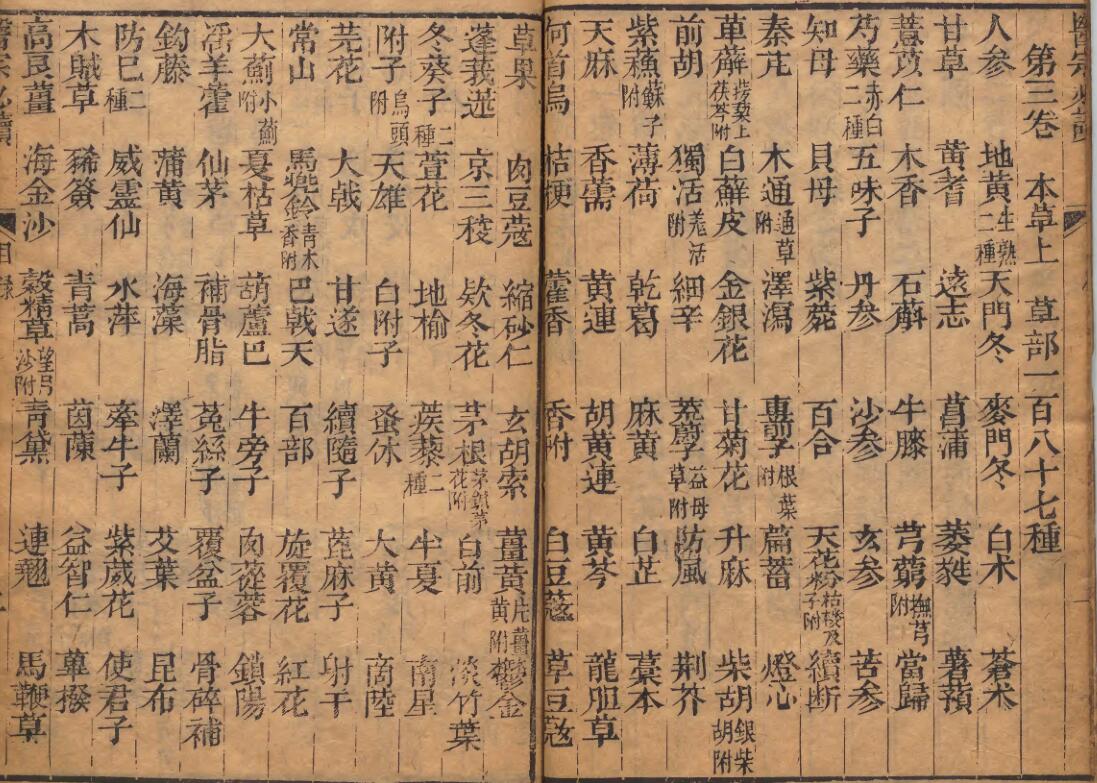 醫宗必讀
第三卷 本草上 草部一百八十七種
人參 地黃生熟二種 天門冬 麥門冬 白朮 蒼朮
甘草 黃耆 遠志 菖蒲 萎蕤 薯蕷
薏苡仁 木香 石斛 牛膝 芎藭撫芎附 當歸
芍藥赤白二種 五味子 丹參 沙參 玄參 苦參
知母 貝母 紫菀 百合 天花粉栝樓及子附 續斷
秦艽 木通通草附 澤瀉 車前子根葉附 萹蓄 燈心
萆薢菝葜土茯苓附 白鮮皮 金銀花 甘菊花 升麻 柴胡銀柴胡附
前胡 獨活羌活附 細辛 茺蔚子益母草附 防風 荊芥
紫蘇蘇子附 薄荷 乾葛 麻黃 白芷 藁本
天麻 香薷 黃連 胡黃連 黃芩 龍胆草
何首烏 桔梗 藿香 香附 白豆蔻 草豆蔻
草果 肉豆蔻 縮砂仁 玄胡索 薑黃片薑黃附 鬱金
蓬莪荗 京三稜 欵冬花 茅根茅鍼茅花附 白前 淡竹葉
冬葵子二種 萱花 地榆 蒺藜二種 半夏 南星
附子烏頭附 天雄 白附子 蚤休 大黃 商陸
芫花 大戟 甘遂 續隨子 蓖麻子 射干
常山 馬兜鈴青木香附 巴戟天 百部 旋覆花 紅花
大薊小薊附 夏枯草 葫蘆巴 牛旁子 肉蓯蓉 鎖陽
淫羊藿 仙茅 補骨脂 菟絲子 覆盆子 骨碎補
鈎藤 蒲黃 海藻 澤蘭 艾葉 昆布
防己二種 威靈仙 水萍 牽牛子 紫葳花 使君子
木賊草 豨薟 青蒿 茵蔯 益智仁 蓽撥
高良薑 海金沙 穀精草望月沙附 青黛 連翹 馬鞭草
醫宗必讀 目錄